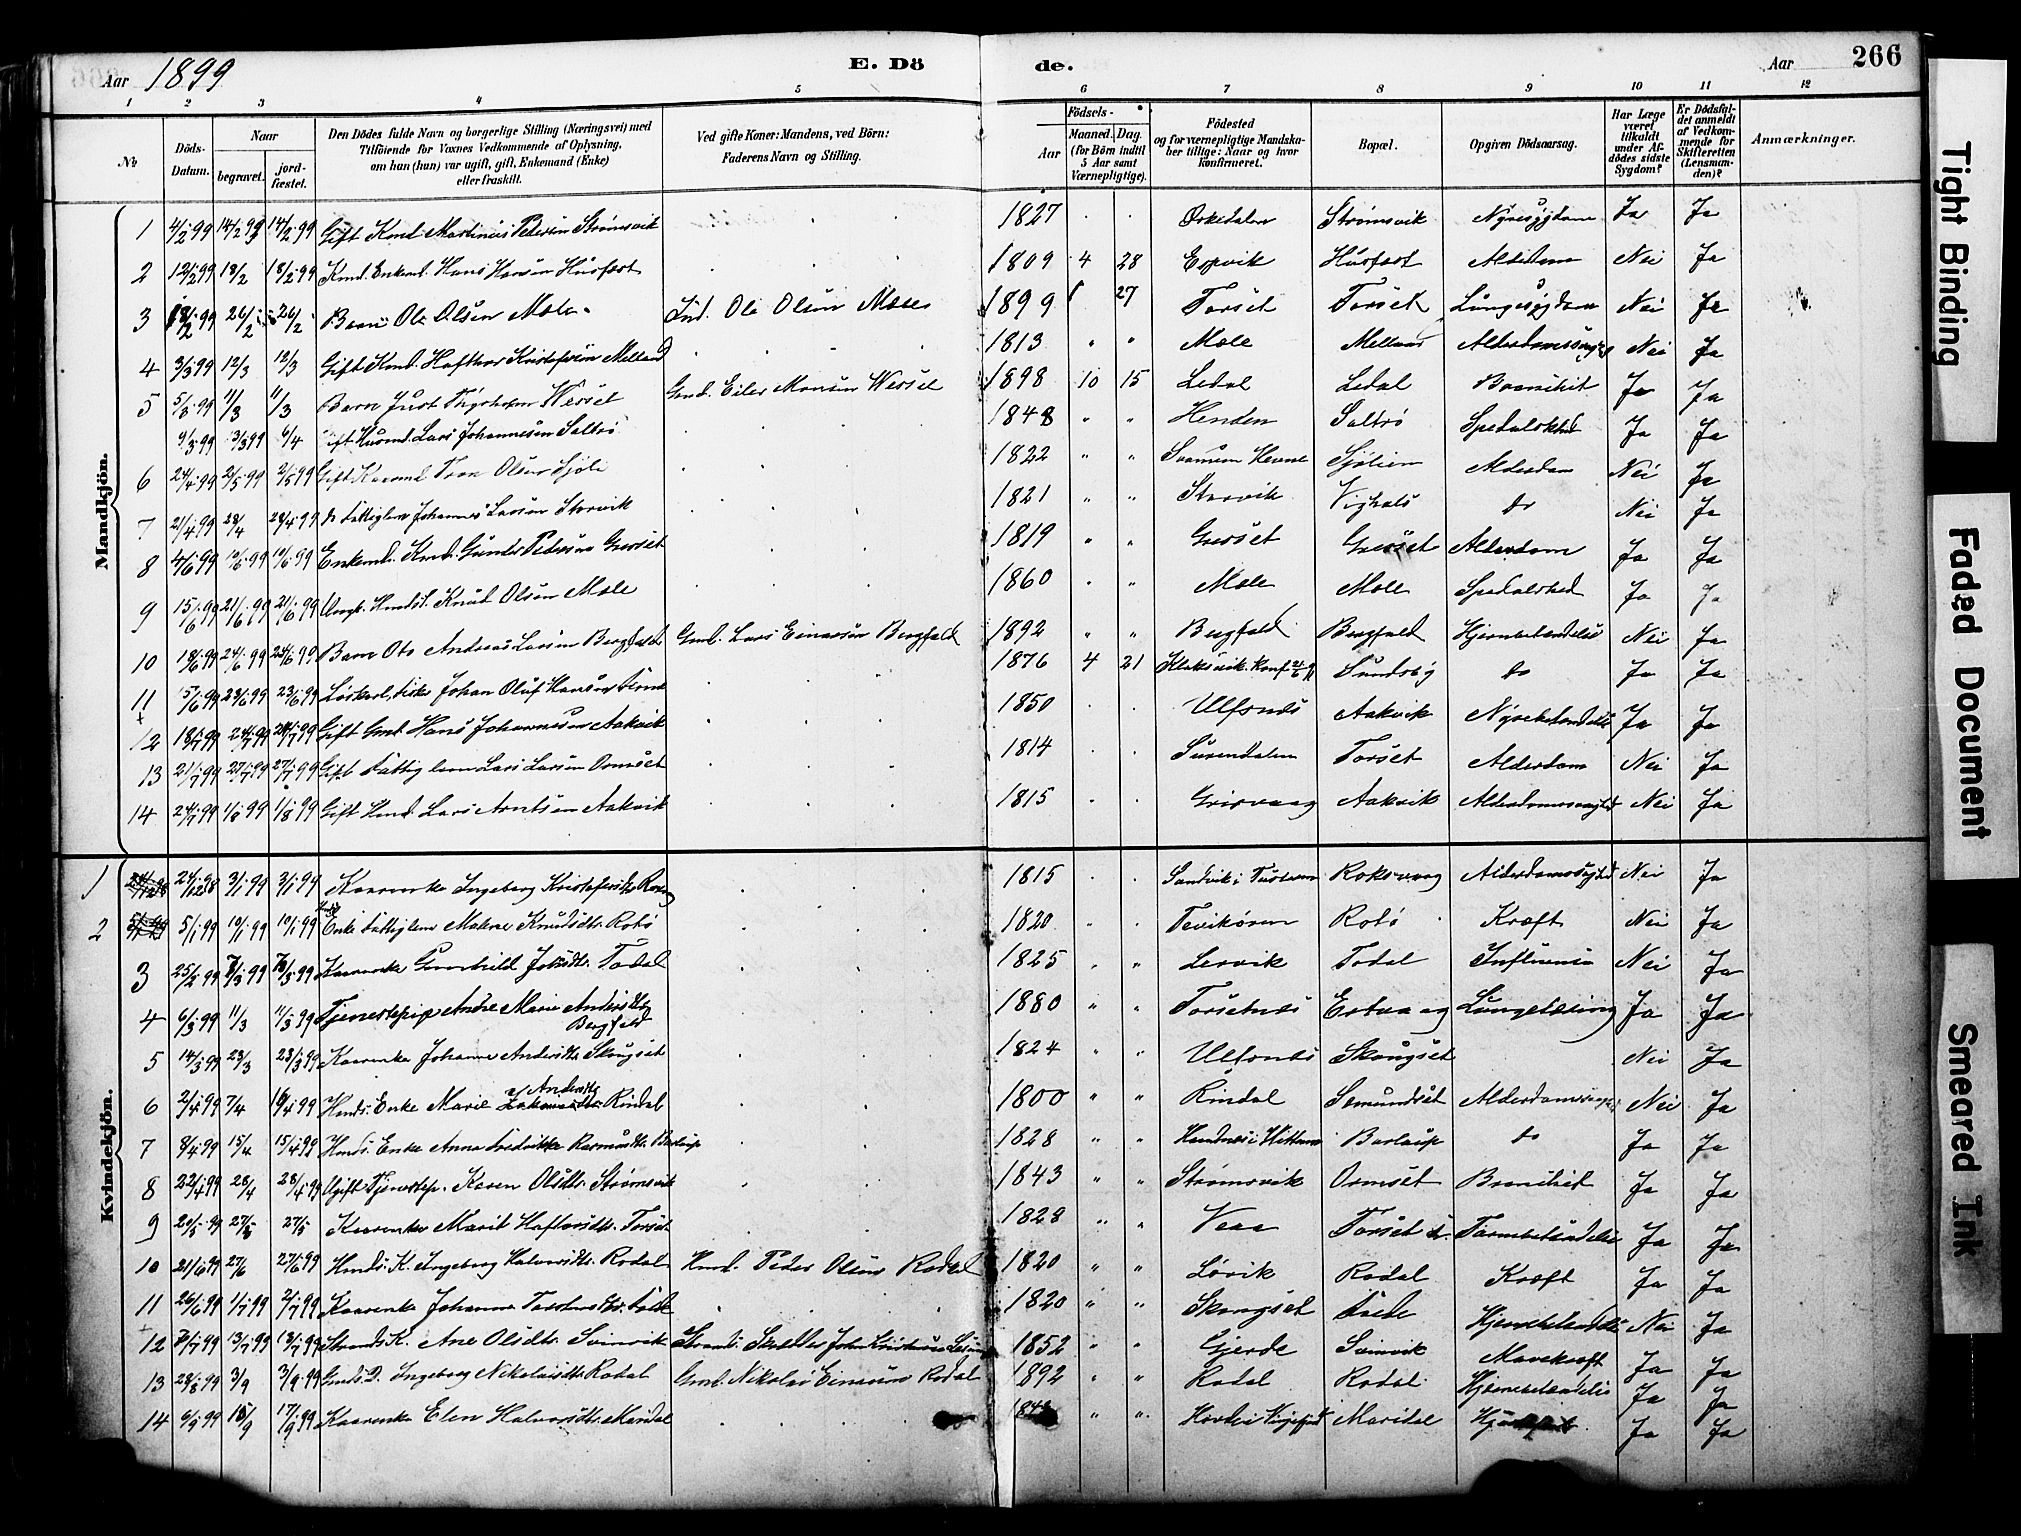 Aar 1899 E. Dö de. Aar 266
1 2 3 4 5 6 7 8 9 10 11 12
No
Döds-Datum.
Naar
begravet.
jordfæstet.
Den Dödes fulde Navn og borgerlige Stilling (Næringsvei) med
Tilföiende for Voxnes Vedkommende af Oplysning,
om han (hun) var ugift, gift, Enkemand (Enke)
eller fraskilt.
Ved gifte Koner: Mandens, ved Börn:
Faderens Navn og Stilling.
Födsels-
Aar
Maaned. Dag.
(for Börn indtil
5 Aar samt
Værnepligtige).
Födested
og for værnepligtige Mandska-
ber tillige: Naar og hvor
konfirmeret.
Bopæl.
Opgiven Dödsaarsag.
Har Læge
været
tilkaldt
under Af-
dødes sidste
Sygdom?
Er Dödsfal-
det anmeldt
af Vedkom-
mende for
Skifteretten
(Lensman-
den)?
Anmærkninger.
Mandkjön.
1 4/2 99 14/2 99 14/2 99 Gift Kmd. Martinus Pedersen Strømsvik 1827 Orkedalen Strømsvik Nyresygdom Ja Ja
2 12/2 99 18/2 18/2 99 Kmd. Enkemd. Hans Hansen Husfast 1809 4 28 Espvik Husfast Alderdom Nei Ja
3 18/2 99 26/2 26/2 Barn Ole Olsen Mæle Ind. Ole Olsen Mæle 1899 1 27 Torset Torset Lungesygdom Nei Ja
4 3/3 99 12/3 12/3 Gift Kmd. Hafthor Kristofersen Melland 1813 Mæle Melland Nei Ja
5 5/3 99 11/3 11/3 Barn Just Wessel Gmd. Eiler Monsen Wessel 1898 10 15 Ledal Ledal Ja Ja
9/3 99 3/3 99 6/4 Gift Husmd. Lars Johannesen Saltrø 1848 Henden Saltrø Spedalskhed Ja Ja
6 24/4 99 2/5 99 2/5 99 Gift Olsen Sjøli 1822 Hevne Alderdom Nei Ja
7 21/4 99 28/4 28/4 99 do Fattiglem Johannes Larsen Storvik 1821 Storvik do Nei Ja
8 4/6 99 10/6 99 10/6 99 Enkemd. Kmd. Gunder Pedersen Gresset 1819 Gresset Gresset Alderdom Ja Ja
9 15/6 99 21/6 99 21/6 99 Ungk. Knud Olsen Mæle 1860 Mæle Mæle Spedalshed Ja Ja
10 18/6 99 24/6 99 24/6 99 Barn Andreas Larsen Bergfald Gmd. Lars Einarsen Bergfald 1892 Bergfald Bergfald Hjernebetændelse Nei Ja
11 5/6 99 23/6 99 23/6 99 Løskarl, fisker Johan Oluf Hansen 1876 4 21 Klaksvik. Konf. Sundsøy do Ja Ja
12 18/7 99 24/7 99 24/7 99 Gift Gmd. Hans Johannesen Aakvik 1850 Ulfsnes Aakvik Nyrebetændelse Ja Ja
13 21/7 99 27/7 99 27/7 99 Gift Fattiglem Lars Larsen Ormset 1814 Surendalen Torset Alderdom Nei Ja
14 24/7 99 1/8 99 1/8 99 Gift Kmd. Lars Arntsen Aakvik 1815 Grisvaag Aakvik Alderdomssvaghed Nei Ja
Kvindekjön.
1 24/12 98 3/1 99 3/1 99 Kaarenke Ingeborg Kristofersdtr. 1815 Sandvik i Tusteren Roksvaag Alderdomssvaghed Nei Ja
2 5/1 99 10/1 99 10/1 99 Enke Fattiglem Malene Knudsdtr. Rotø 1820 Tevikøren Rotø Kræft Nei Ja
3 25/2 99 7/3 99 Kaarenke Gunhild Johsdtr. Todal 1825 Lervik Todal Influensa Nei Ja
4 6/3 99 11/3 11/3 99 Tjenestepige Andre Marie Andersdtr. Bergfald 1880 Torsetnes Ertvaag Ja Ja
5 14/3 99 23/3 23/3 99 Kaarenke Johanna Andersdtr. Skougset 1824 Ulfsnes Skougset Nei Ja
6 2/4 99 7/4 16/4 99 Hmds. Enke Marie Andersdtr. Rindal 1800 Rindal Semundset Alderdomssvaghed Nei Ja
7 8/4 99 15/4 15/4 99 Hmds. Enke Anna Fredrikke Rasmusdtr. Barlaup 1828 Barlaup do Ja Ja
8 22/4 99 28/4 28/4 99 Ugift Tjenestep. Karen Olsdtr. Strømsvik 1843 Strømsvik Ormset Ja Ja
9 20/5 99 27/5 27/5 Kaarenke Marit Haftorsdtr. Torset 1828 Veaa Torset Tarmbetændelse Ja Ja
10 21/6 99 27/6 27/6 99 Hmds. K. Ingeborg Halvorsdtr. Rodal Hmd. Peder Olsen Rodal 1820 Løvik Rodal Kræft Ja Ja
11 26/6 99 1/7 99 2/7 99 Kaarenke Johanna Torstensdtr. 1820 Skougset Hjernebetændelse Nei Ja
12 7/7 99 13/7 99 13/7 99 Strands. K. Ane Olsdtr. Svinvik Strands. John Kristensen 1852 Gjerde Svinvik Mavekræft Ja Ja
13 28/8 99 3/9 3/9 99 Gmds. D. Ingeborg Nikolaisdtr. Rodal Gmd. Nikolai Einarsen Rodal 1892 Rodal Rodal Hjernebetændelse Ja Ja
14 6/9 99 16/9 17/9 99 Kaarenke Elen Halvorsdtr. Maridal Maridal Ja Ja
Tight Binding
Faded Document
Smeared Ink